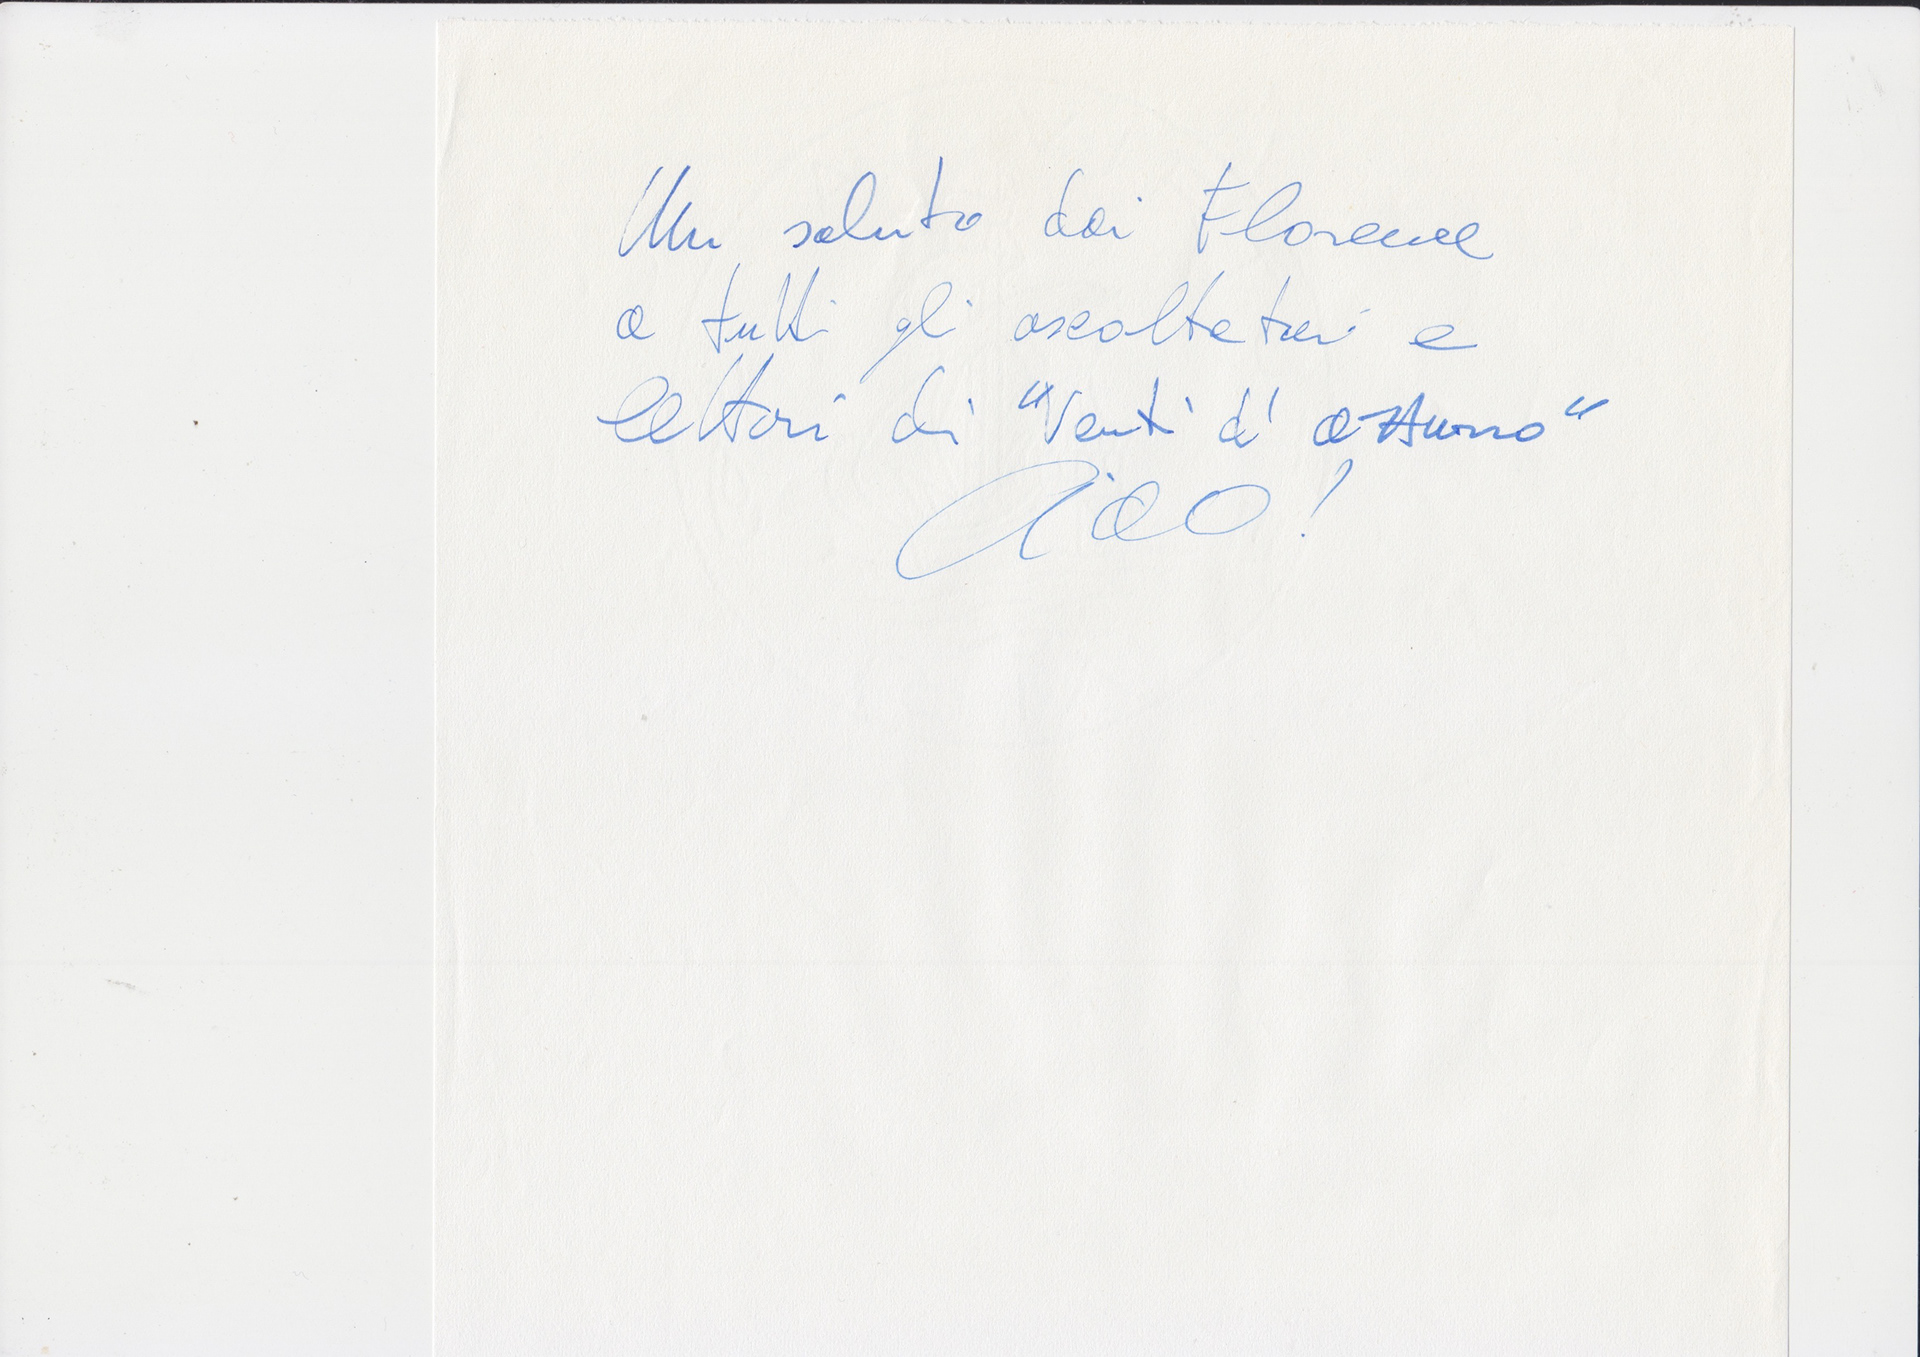 Un saluto dai Florence
a tutti gli ascoltatori e
lettori di "Venti d'azzurro"
Ciao!